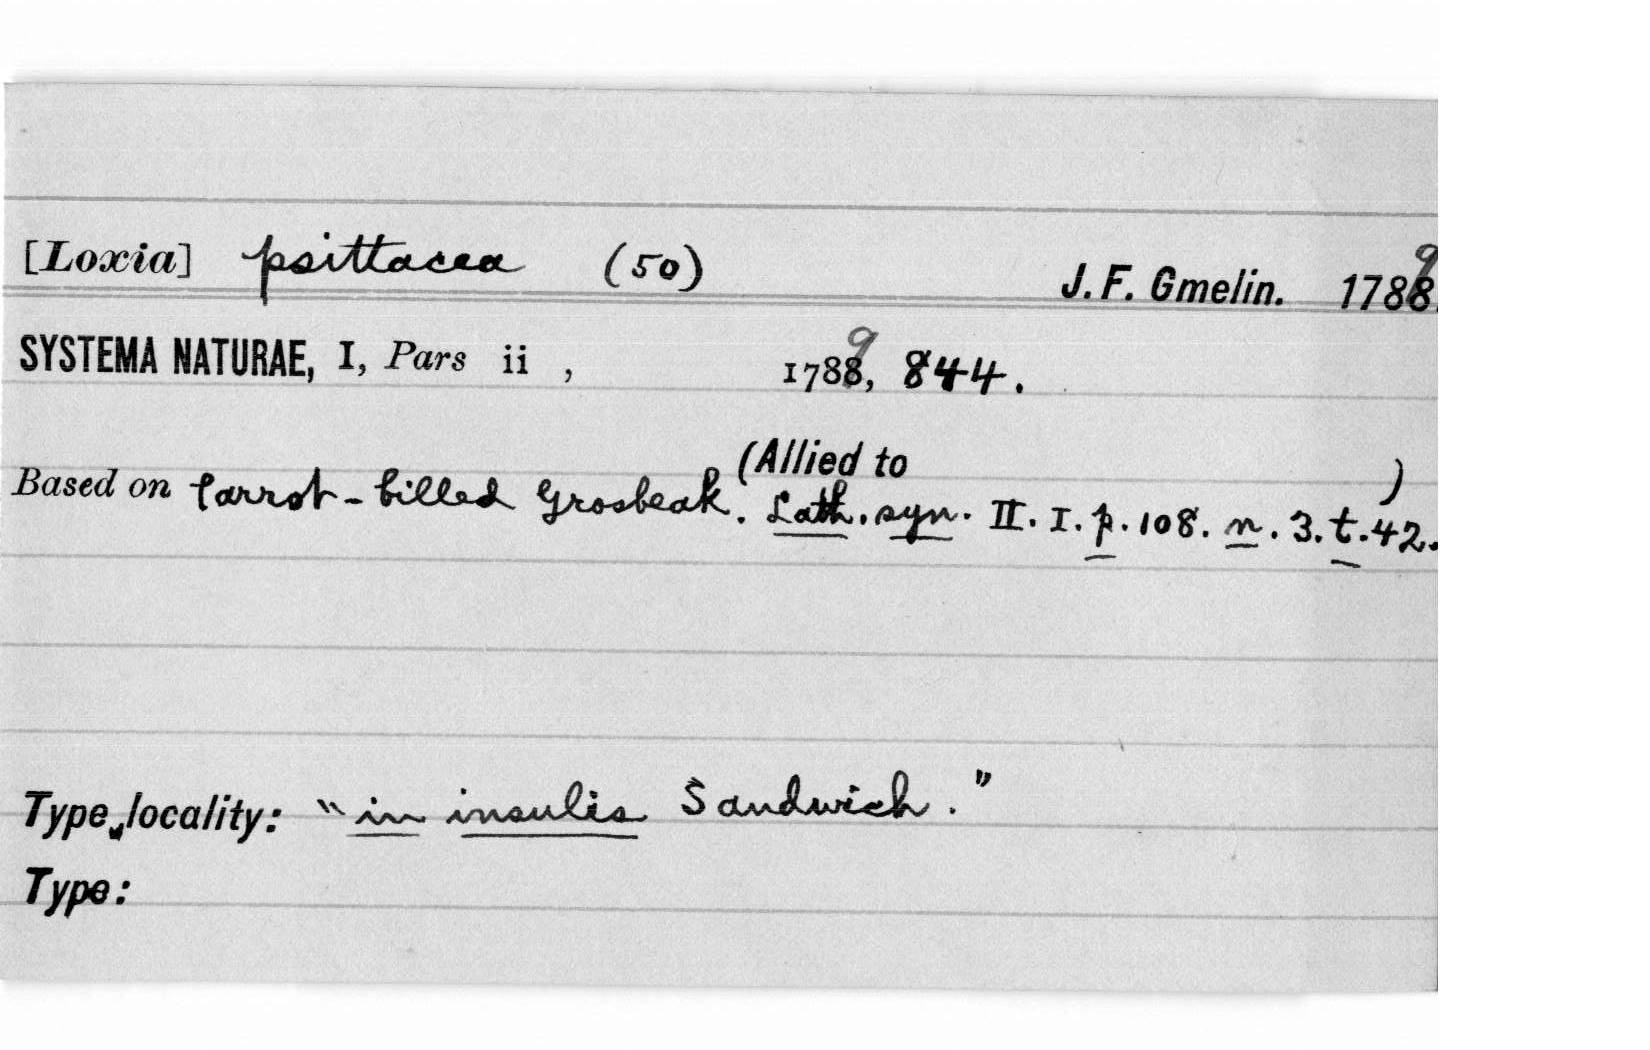 [Loxia] psittacea (50) J. F. Gmelin. 1789
SYSTEMA NATURAE, I, Pars ii , 1789, 844.
(Allied to )
Based on Parrot-billed Grosbeak. Lath. syn. II. I. p. 108. n. 3. t. 42.
Type locality: "in insulis Sandwich."
Type: